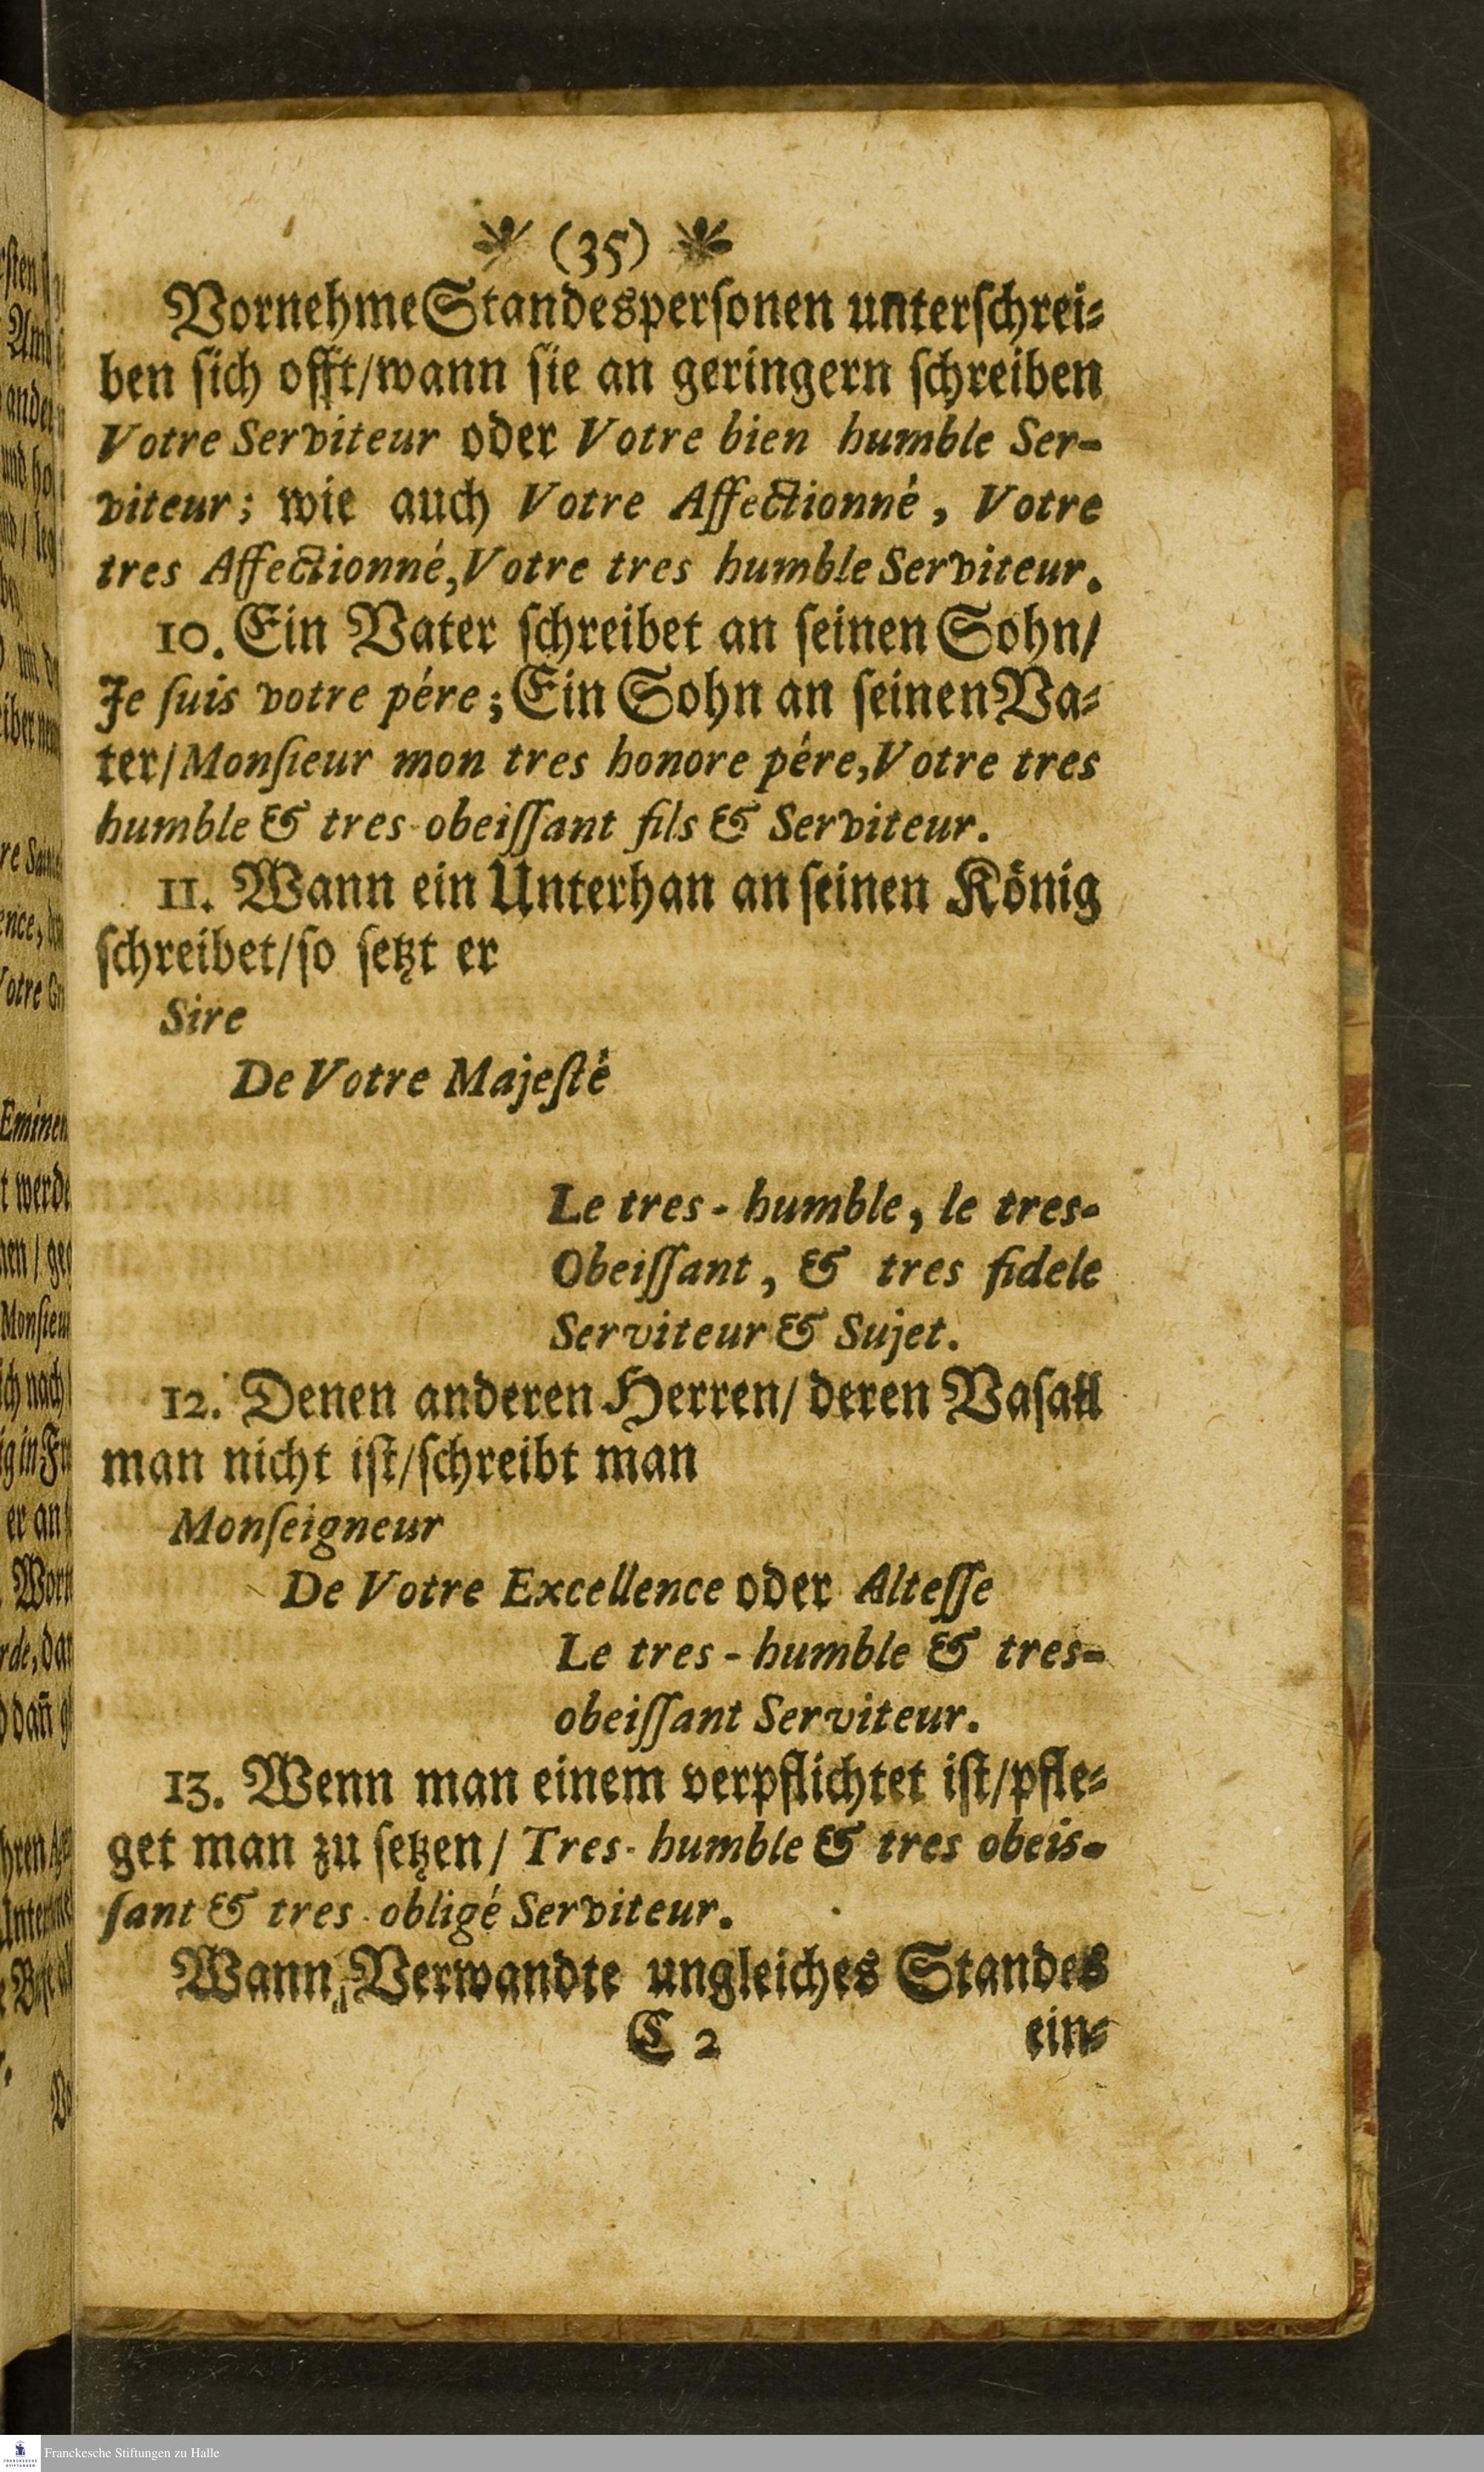 (35)
Vornehme Standespersonen unterschrei-
ben sich offt/wann sie an geringern schreiben
Votre Serviteur oder Votre bien humble Ser-
viteur; wie auch Votre Affectionné, Votre
tres Affectionné, Votre tres humble Serviteur.
10. Ein Vater schreibet an seinen Sohn/
Je suis votre pére; Ein Sohn an seinen Va-
ter/Monsieur mon tres honore pére, Votre tres
humble & tres-obeissant fils & Serviteur.
11. Wann ein Unterhan an seinen König
schreibet/so setzt er
Sire
De Votre Majesté
Le tres-humble, le tres-
Obeissant, & tres fidele
Serviteur & Sujet.
12. Denen anderen Herren/ deren Vasall
man nicht ist/schreibt man
Monseigneur
De Votre Excellence oder Altesse
Le tres-humble & tres-
obeissant Serviteur.
13. Wenn man einem verpflichtet ist/pfle-
get man zu setzen/ Tres-humble & tres obeis-
sant & tres-obligé Serviteur.
Wann Verwandte ungleiches Standes
C 2 ein-
Franckesche Stiftungen zu Halle